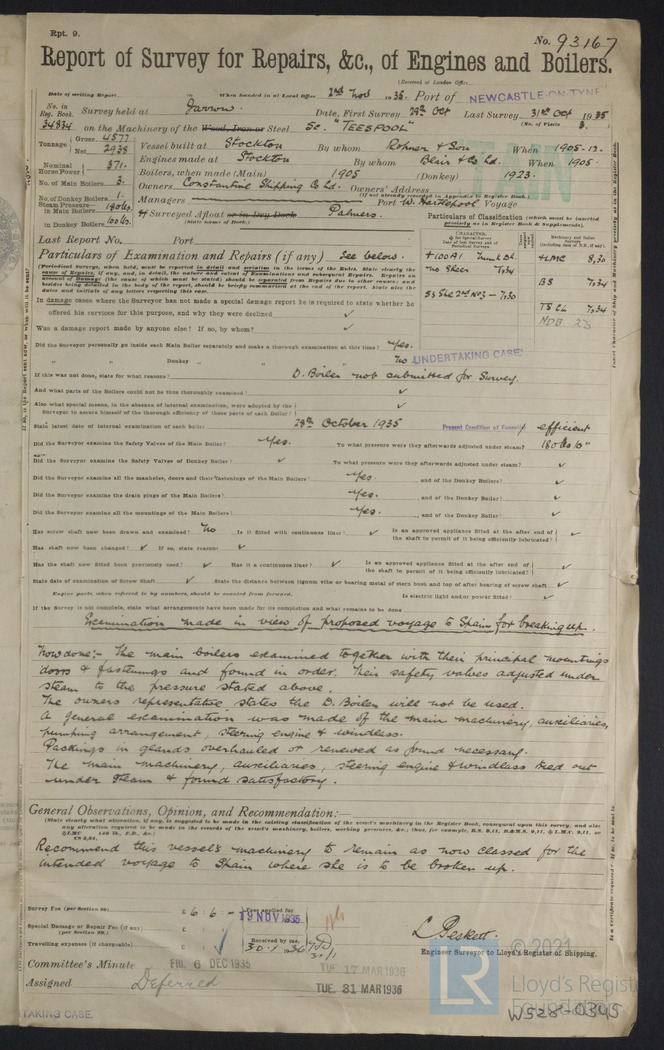 Rpt. 9.
No. 93167
Report of Survey for Repairs, &c., of Engines and Boilers.
(Received at London Office
Date of writing Report When handed in at Local Office 2nd Nov 1935 Port of NEWCASTLE-ON-TYNE
No. in Reg. Book. Survey held at Jarrow. Date, First Survey 28th Oct Last Survey 31st Oct 1935
(No. of Visits 3.
34834 on the Machinery of the Wood, Iron or Steel Sc. "TEESPOOL"
Tonnage Gross 4577 Net 2938
Vessel built at Stockton By whom Ropner & Son When 1905-12.
Nominal Horse Power 371.
Engines made at Stockton By whom Blair & Co Ld. When 1905.
No. of Main Boilers 3. Boilers, when made (Main) 1905 (Donkey) 1923.
No. of Donkey Boilers 1. Owners Constantial Shipping Co Ld. Owners' Address
(If not already recorded in Appendix to Register Book.)
Steam Pressure in Main Boilers 180 lbs. Managers Port W. Hartlepool Voyage
in Donkey Boilers 100 lbs. If Surveyed Afloat or in Dry Dock Palmers.
(State name of Dock.)
Particulars of Classification (which must be inserted precisely as in Register Book & Supplements).
Last Report No. Port
Particulars of Examination and Repairs (if any) See below.
+100A1
no Sheer 7,34
SS She 2nd No3 - 7,30
+LMC 8,30
BS 7,34
TS CL 7,34
NDB 23
In damage cases where the Surveyor has not made a special damage report he is required to state whether he
offered his services for this purpose, and why they were declined ✓
Was a damage report made by anyone else? If so, by whom? ✓
Did the Surveyor personally go inside each Main Boiler separately and make a thorough examination at this time? Yes.
" " Donkey " " " no UNDERTAKING CASE.
If this was not done, state for what reasons? D. Boiler not submitted for Survey.
And what parts of the Boilers could not be thus thoroughly examined? ✓
Also what special means, in the absence of internal examination, were adopted by the
Surveyor to assure himself of the thorough efficiency of those parts of each Boiler? ✓
State latest date of internal examination of each boiler 28th October 1935 Present Condition of Funnel(s) efficient
Did the Surveyor examine the Safety Valves of the Main Boiler? Yes. To what pressure were they afterwards adjusted under steam? 180 lbs □"
Did the Surveyor examine the Safety Valves of Donkey Boiler? ✓ To what pressure were they afterwards adjusted under steam? ✓
Did the Surveyor examine all the manholes, doors and their fastenings of the Main Boilers? Yes. , and of the Donkey Boilers? ✓
Did the Surveyor examine the drain plugs of the Main Boilers? Yes. , and of the Donkey Boiler? ✓
Did the Surveyor examine all the mountings of the Main Boilers? Yes. , and of the Donkey Boiler? ✓
Has screw shaft now been drawn and examined? No Is it fitted with continuous liner? ✓ Is an approved appliance fitted at the after end of
the shaft to permit of it being efficiently lubricated? ✓
Has shaft now been changed? ✓ If so, state reasons ✓
Has the shaft now fitted been previously used? ✓ Has it a continuous liner? ✓ Is an approved appliance fitted at the after end of
the shaft to permit of it being efficiently lubricated? ✓
State date of examination of Screw Shaft ✓ State the distance between lignum vitæ or bearing metal of stern bush and top of after bearing of screw shaft ✓
Engine parts, when referred to by numbers, should be counted from forward. Is electric light and/or power fitted? ✓
If the Survey is not complete, state what arrangements have been made for its completion and what remains to be done
Examination made in view of proposed voyage to Spain for breaking up.
Now done:- The main boilers examined together with their principal mountings
doors & fastenings and found in order. Their safety valves adjusted under
steam to the pressure stated above.
The owners representative states the D. Boiler will not be used.
A general examination was made of the main machinery, auxiliaries,
pumping arrangement, steering engine & windlass.
Packings in glands overhauled or renewed as found necessary.
The main machinery, auxiliaries, steering engine & windlass tried out
under steam & found satisfactory.
General Observations, Opinion, and Recommendation:—
(State clearly what alteration, if any, is suggested to be made in the existing classification of the vessel's machinery in the Register Book, consequent upon this survey, and also
any alteration required to be made in the records of the vessel's machinery, boilers, working pressures, &c.; thus, for example, B.S. 9,11, B.&M.S. 9,11, ✠L.M.C. 9,11, or
Recommend this vessel's machinery to remain as now classed for the
intended voyage to Spain where she is to be broken up.
Survey Fee (per Section 29) £ 6 : 6 : - Fees applied for 19 NOV 1935
Special Damage or Repair Fee (if any) (per Section 29.) £
Travelling expenses (if chargeable) £ Received by me, 30.1.36
L Beskett.
Engineer Surveyor to Lloyd's Register of Shipping.
Committee's Minute FRI. 6 DEC 1935 TUE 17 MAR 1936
Assigned Deferred TUE. 31 MAR 1936
© 2021
LR
Lloyd's Register
Foundation
W528-0345
TAKING CASE.